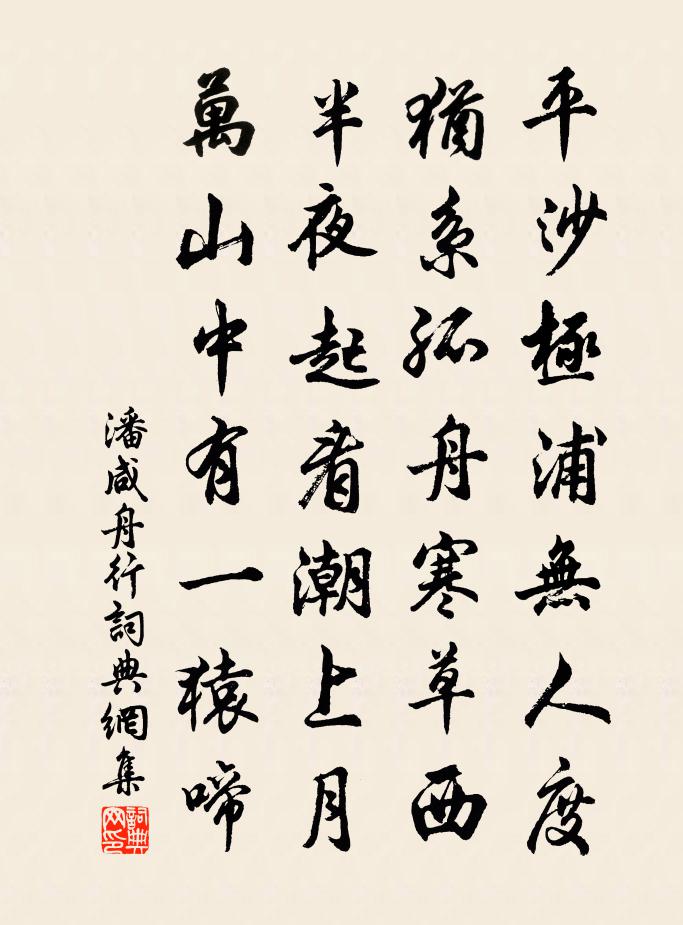 平沙極浦無人度
猶系孤舟寒草西
半夜起看潮上月
萬山中有一猿啼
潘咸舟行詞典網集
詞典
网印